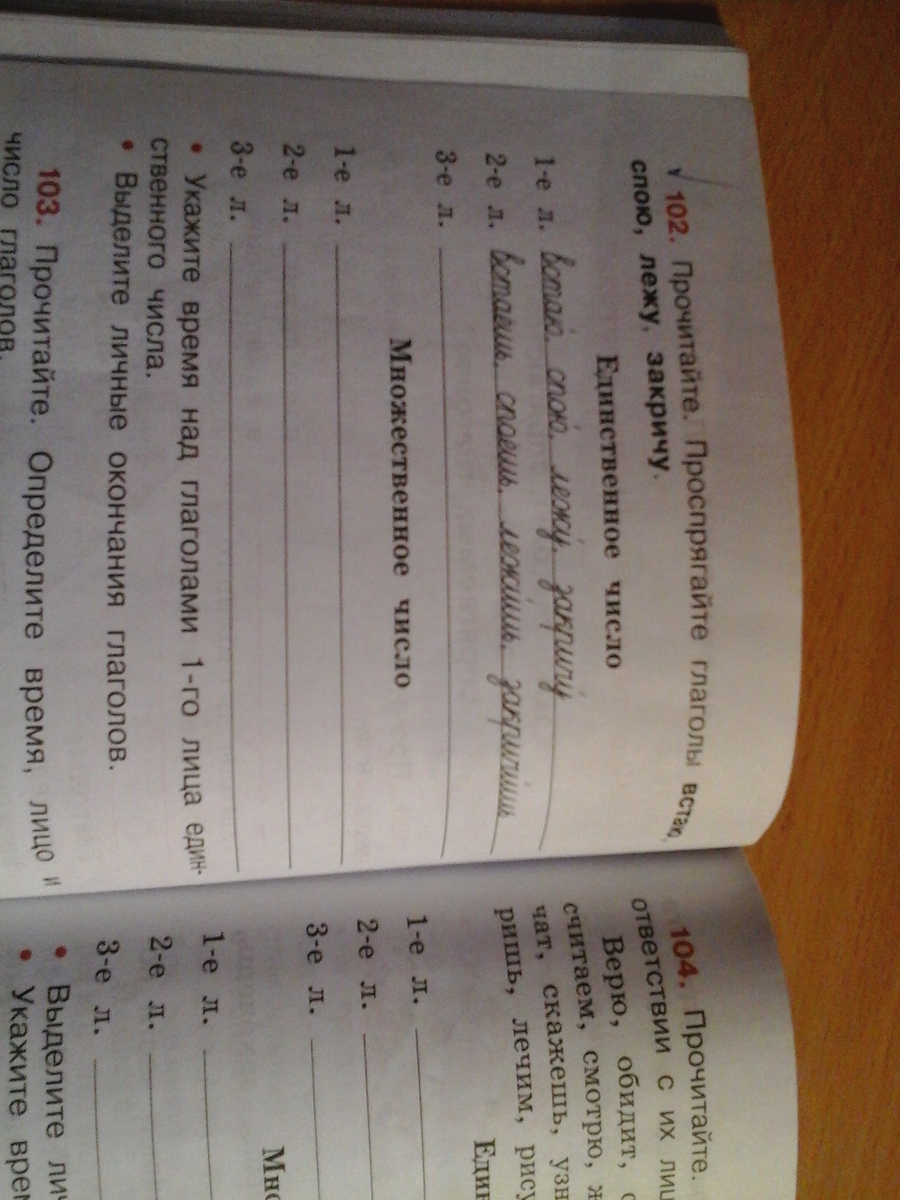 102. Прочитайте. Проспрягайте глаголы встаю,
спою, лежу, закричу.
Единственное число
1-е л. встаю, спою, лежу, закричу
2-е л. встаешь, споешь, лежишь, закричишь
3-е л.
Множественное число
1-е л.
2-е л.
3-е л.
• Укажите время над глаголами 1-го лица един-
ственного числа.
• Выделите личные окончания глаголов.
103. Прочитайте. Определите время, лицо и
число глаголов.
104. Прочитайте.
ответствии с их
Верю, обидит,
считаем, смотрю,
чат, скажешь,
ришь, лечим,
1-е л.
2-е л.
3-е л.
1-е л.
2-е л.
3-е л.
• Выделите
• Укажите